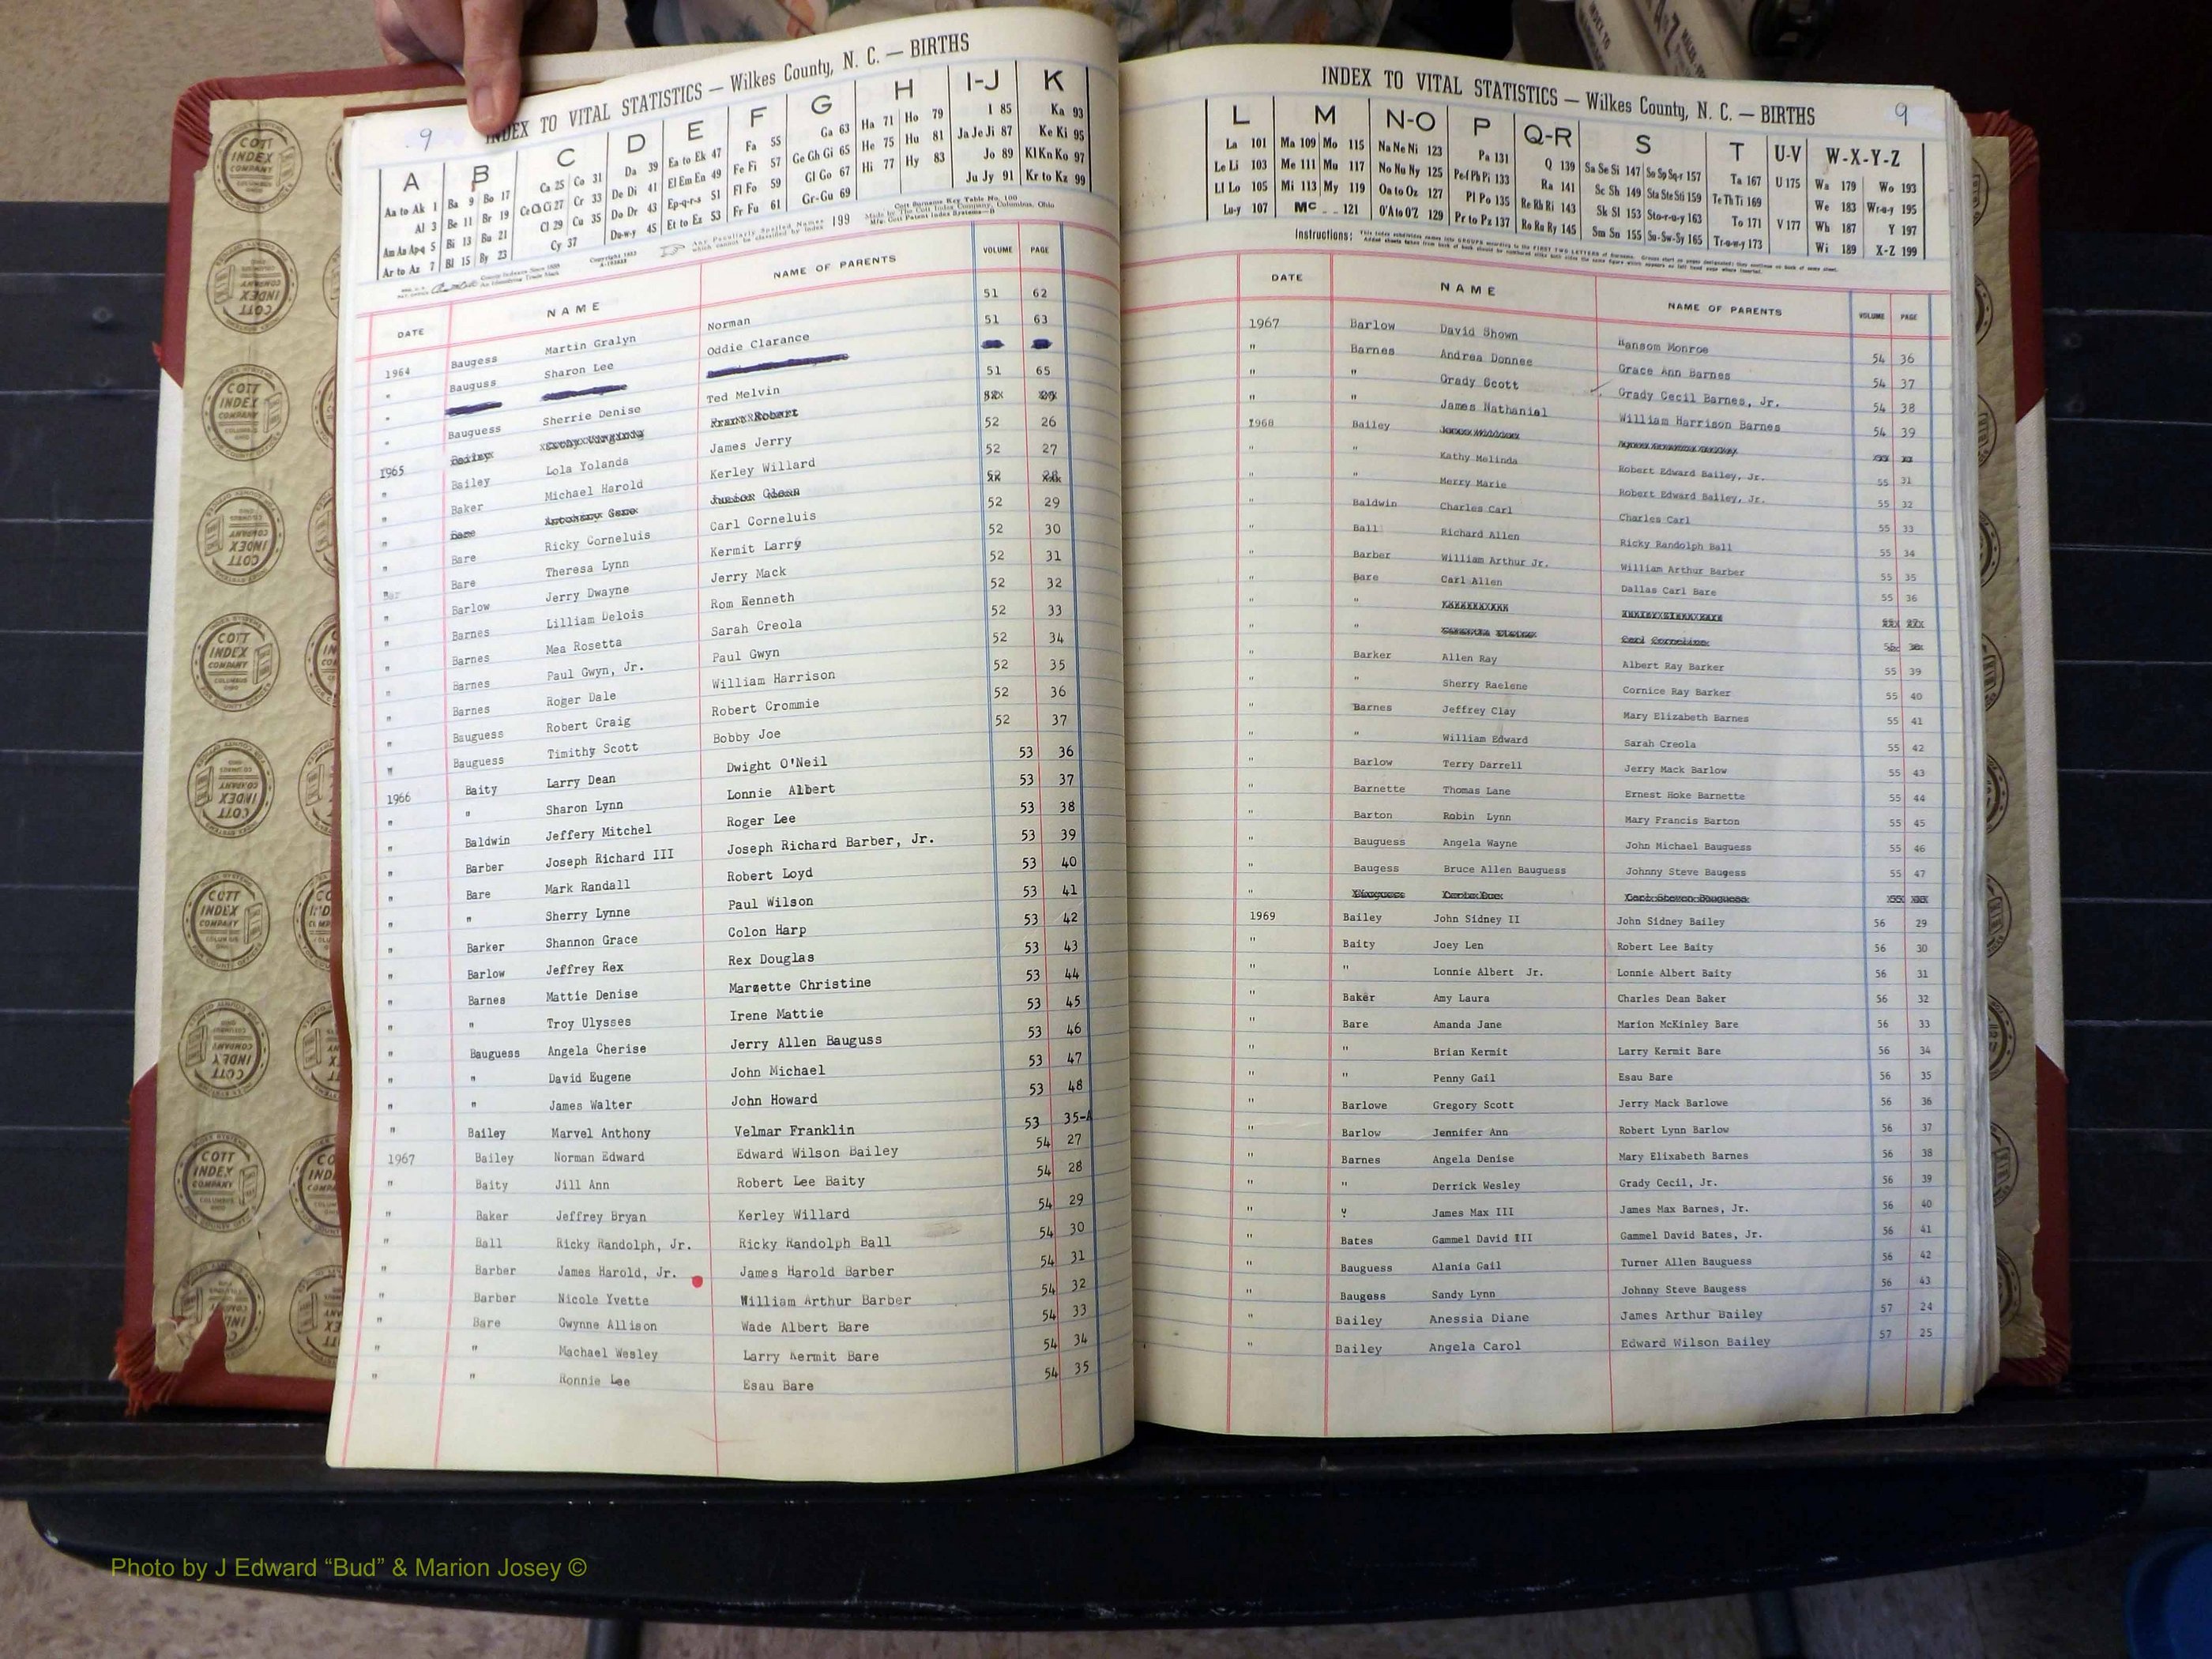 INDEX TO VITAL STATISTICS — Wilkes County, N. C. — BIRTHS
9
A B C D E F G H I-J K
Aa to Ak 1 Ba 9 Bo 17 Ca 25 Co 31 Da 39 Ea to Ek 47 Fa 55 Ga 63 Ha 71 Ho 79 I 85 Ka 93
Al 3 Be 11 Br 19 Ce Ch Ci 27 Cr 33 De Di 41 El Em En 49 Fe Fi 57 Ge Gh Gi 65 He 75 Hu 81 Ja Je Ji 87 Ke Ki 95
Am An Ap-q 5 Bi 13 Bu 21 Cl 29 Cu 35 Do Dr 43 Ep-q-r-s 51 Fl Fo 59 Gl Go 67 Hi 77 Hy 83 Jo 89 Kl Kn Ko 97
Ar to Az 7 Bl 15 By 23 Cy 37 Du-w-y 45 Et to Ez 53 Fr Fu 61 Gr-Gu 69 Ju Jy 91 Kr to Kz 99
Any Peculiarly Spelled Names which cannot be classified by index 199
Cott Surname Key Table No. 100
Made by The Cott Index Company, Columbus, Ohio
DATE NAME NAME OF PARENTS VOLUME PAGE
1964 Baugess Martin Gralyn Norman 51 62
" Bauguss Sharon Lee Oddie Clarance 51 63
" Bauguess Sherrie Denise Ted Melvin 51 65
1965
" Bailey Lola Yolanda James Jerry 52 26
" Baker Michael Harold Kerley Willard 52 27
" Bare Anthony Gene Junior Glenn 52 28
" Bare Ricky Corneluis Carl Corneluis 52 29
" Bare Theresa Lynn Kermit Larry 52 30
" Barlow Jerry Dwayne Jerry Mack 52 31
" Barnes Lilliam Delois Rom Kenneth 52 32
" Barnes Mea Rosetta Sarah Creola 52 33
" Barnes Paul Gwyn, Jr. Paul Gwyn 52 34
" Barnes Roger Dale William Harrison 52 35
" Bauguess Robert Craig Robert Crommie 52 36
" Bauguess Timithy Scott Bobby Joe 52 37
1966 Baity Larry Dean Dwight O'Neil 53 36
" " Sharon Lynn Lonnie Albert 53 37
" Baldwin Jeffery Mitchel Roger Lee 53 38
" Barber Joseph Richard III Joseph Richard Barber, Jr. 53 39
" Bare Mark Randall Robert Loyd 53 40
" " Sherry Lynne Paul Wilson 53 41
" Barker Shannon Grace Colon Harp 53 42
" Barlow Jeffrey Rex Rex Douglas 53 43
" Barnes Mattie Denise Marzette Christine 53 44
" " Troy Ulysses Irene Mattie 53 45
" Bauguess Angela Cherise Jerry Allen Bauguss 53 46
" " David Eugene John Michael 53 47
" " James Walter John Howard 53 48
" Bailey Marvel Anthony Velmar Franklin 53 35-A
1967 Bailey Norman Edward Edward Wilson Bailey 54 27
" Baity Jill Ann Robert Lee Baity 54 28
" Baker Jeffrey Bryan Kerley Willard 54 29
" Ball Ricky Randolph, Jr. Ricky Randolph Ball 54 30
" Barber James Harold, Jr. James Harold Barber 54 31
" Barber Nicole Yvette William Arthur Barber 54 32
" Bare Gwynne Allison Wade Albert Bare 54 33
" " Machael Wesley Larry Kermit Bare 54 34
" " Ronnie Lee Esau Bare 54 35
INDEX TO VITAL STATISTICS — Wilkes County, N. C. — BIRTHS
9
L M N-O P Q-R S T U-V W-X-Y-Z
La 101 Ma 109 Mo 115 Na Ne Ni 123 Pa 131 Q 139 Sa Se Si 147 So Sp Sq-r 157 Ta 167 U 175 Wa 179 Wo 193
Le Li 103 Me 111 Mu 117 No Nu Ny 125 Pe-f Ph Pi 133 Ra 141 Sc Sh 149 Sta Ste Sti 159 Te Th Ti 169 We 183 Wr-u-y 195
Ll Lo 105 Mi 113 My 119 Oa to Oz 127 Pl Po 135 Re Rh Ri 143 Sk Sl 153 Sto-r-u-y 163 To 171 V 177 Wh 187 Y 197
Lu-y 107 Mc 121 O'A to O'Z 129 Pr to Pz 137 Ro Ru Ry 145 Sm Sn 155 Su-Sw-Sy 165 Tr-u-w-y 173 Wi 189 X-Z 199
Instructions:
DATE NAME NAME OF PARENTS VOLUME PAGE
1967 Barlow David Shown Ransom Monroe 54 36
" Barnes Andrea Donnee Grace Ann Barnes 54 37
" " Grady Scott Grady Cecil Barnes, Jr. 54 38
" " James Nathaniel William Harrison Barnes 54 39
1968 Bailey
" " Kathy Melinda Robert Edward Bailey, Jr. 55 31
" " Merry Marie Robert Edward Bailey, Jr. 55 32
" Baldwin Charles Carl Charles Carl 55 33
" Ball Richard Allen Ricky Randolph Ball 55 34
" Barber William Arthur Jr. William Arthur Barber 55 35
" Bare Carl Allen Dallas Carl Bare 55 36
" "
" " Carl Cornelius
" Barker Allen Ray Albert Ray Barker 55 39
" " Sherry Raelene Cornice Ray Barker 55 40
" Barnes Jeffrey Clay Mary Elizabeth Barnes 55 41
" " William Edward Sarah Creola 55 42
" Barlow Terry Darrell Jerry Mack Barlow 55 43
" Barnette Thomas Lane Ernest Hoke Barnette 55 44
" Barton Robin Lynn Mary Francis Barton 55 45
" Bauguess Angela Wayne John Michael Bauguess 55 46
" Baugess Bruce Allen Bauguess Johnny Steve Baugess 55 47
"
1969 Bailey John Sidney II John Sidney Bailey 56 29
" Baity Joey Len Robert Lee Baity 56 30
" " Lonnie Albert Jr. Lonnie Albert Baity 56 31
" Baker Amy Laura Charles Dean Baker 56 32
" Bare Amanda Jane Marion McKinley Bare 56 33
" " Brian Kermit Larry Kermit Bare 56 34
" " Penny Gail Esau Bare 56 35
" Barlowe Gregory Scott Jerry Mack Barlowe 56 36
" Barlow Jennifer Ann Robert Lynn Barlow 56 37
" Barnes Angela Denise Mary Elixabeth Barnes 56 38
" " Derrick Wesley Grady Cecil, Jr. 56 39
" " James Max III James Max Barnes, Jr. 56 40
" Bates Gammel David III Gammel David Bates, Jr. 56 41
" Bauguess Alania Gail Turner Allen Bauguess 56 42
" Baugess Sandy Lynn Johnny Steve Baugess 56 43
" Bailey Anessia Diane James Arthur Bailey 57 24
" Bailey Angela Carol Edward Wilson Bailey 57 25
COTT INDEX COMPANY
Photo by J Edward “Bud” & Marion Josey ©